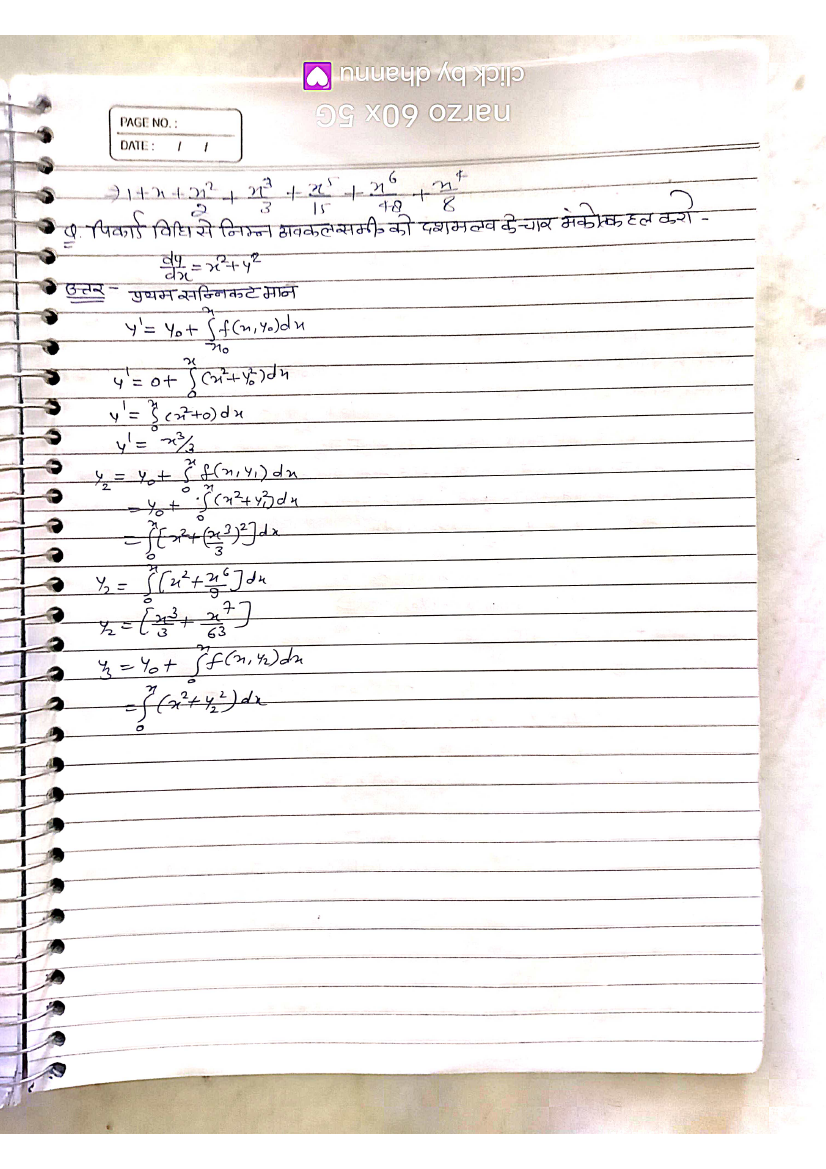 click by dhannu
narzo 60x 5G
PAGE NO. :
DATE : / /
→ 1 + x + x²/2 + x³/3 + x⁵/15 + x⁶/48 + x⁴/8
Q. पिकार्ड विधि से निम्न अवकल समी॰ को दशमलव के चार अंको तक हल करो -
dy/dx = x² + y²
उत्तर - प्रथम सन्निकट मान
y' = y₀ + ∫ₓ₀ˣ f(x, y₀) dx
y' = 0 + ∫₀ˣ (x² + y₀²) dx
y' = ∫₀ˣ (x² + 0) dx
y' = x³/3
y₂ = y₀ + ∫₀ˣ f(x, y₁) dx
= y₀ + ∫₀ˣ (x² + y₁²) dx
= ∫₀ˣ [x² + (x³/3)²] dx
y₂ = ∫₀ˣ [x² + x⁶/9] dx
y₂ = [x³/3 + x⁷/63]
y₃ = y₀ + ∫₀ˣ f(x, y₂) dx
= ∫₀ˣ (x² + y₂²) dx